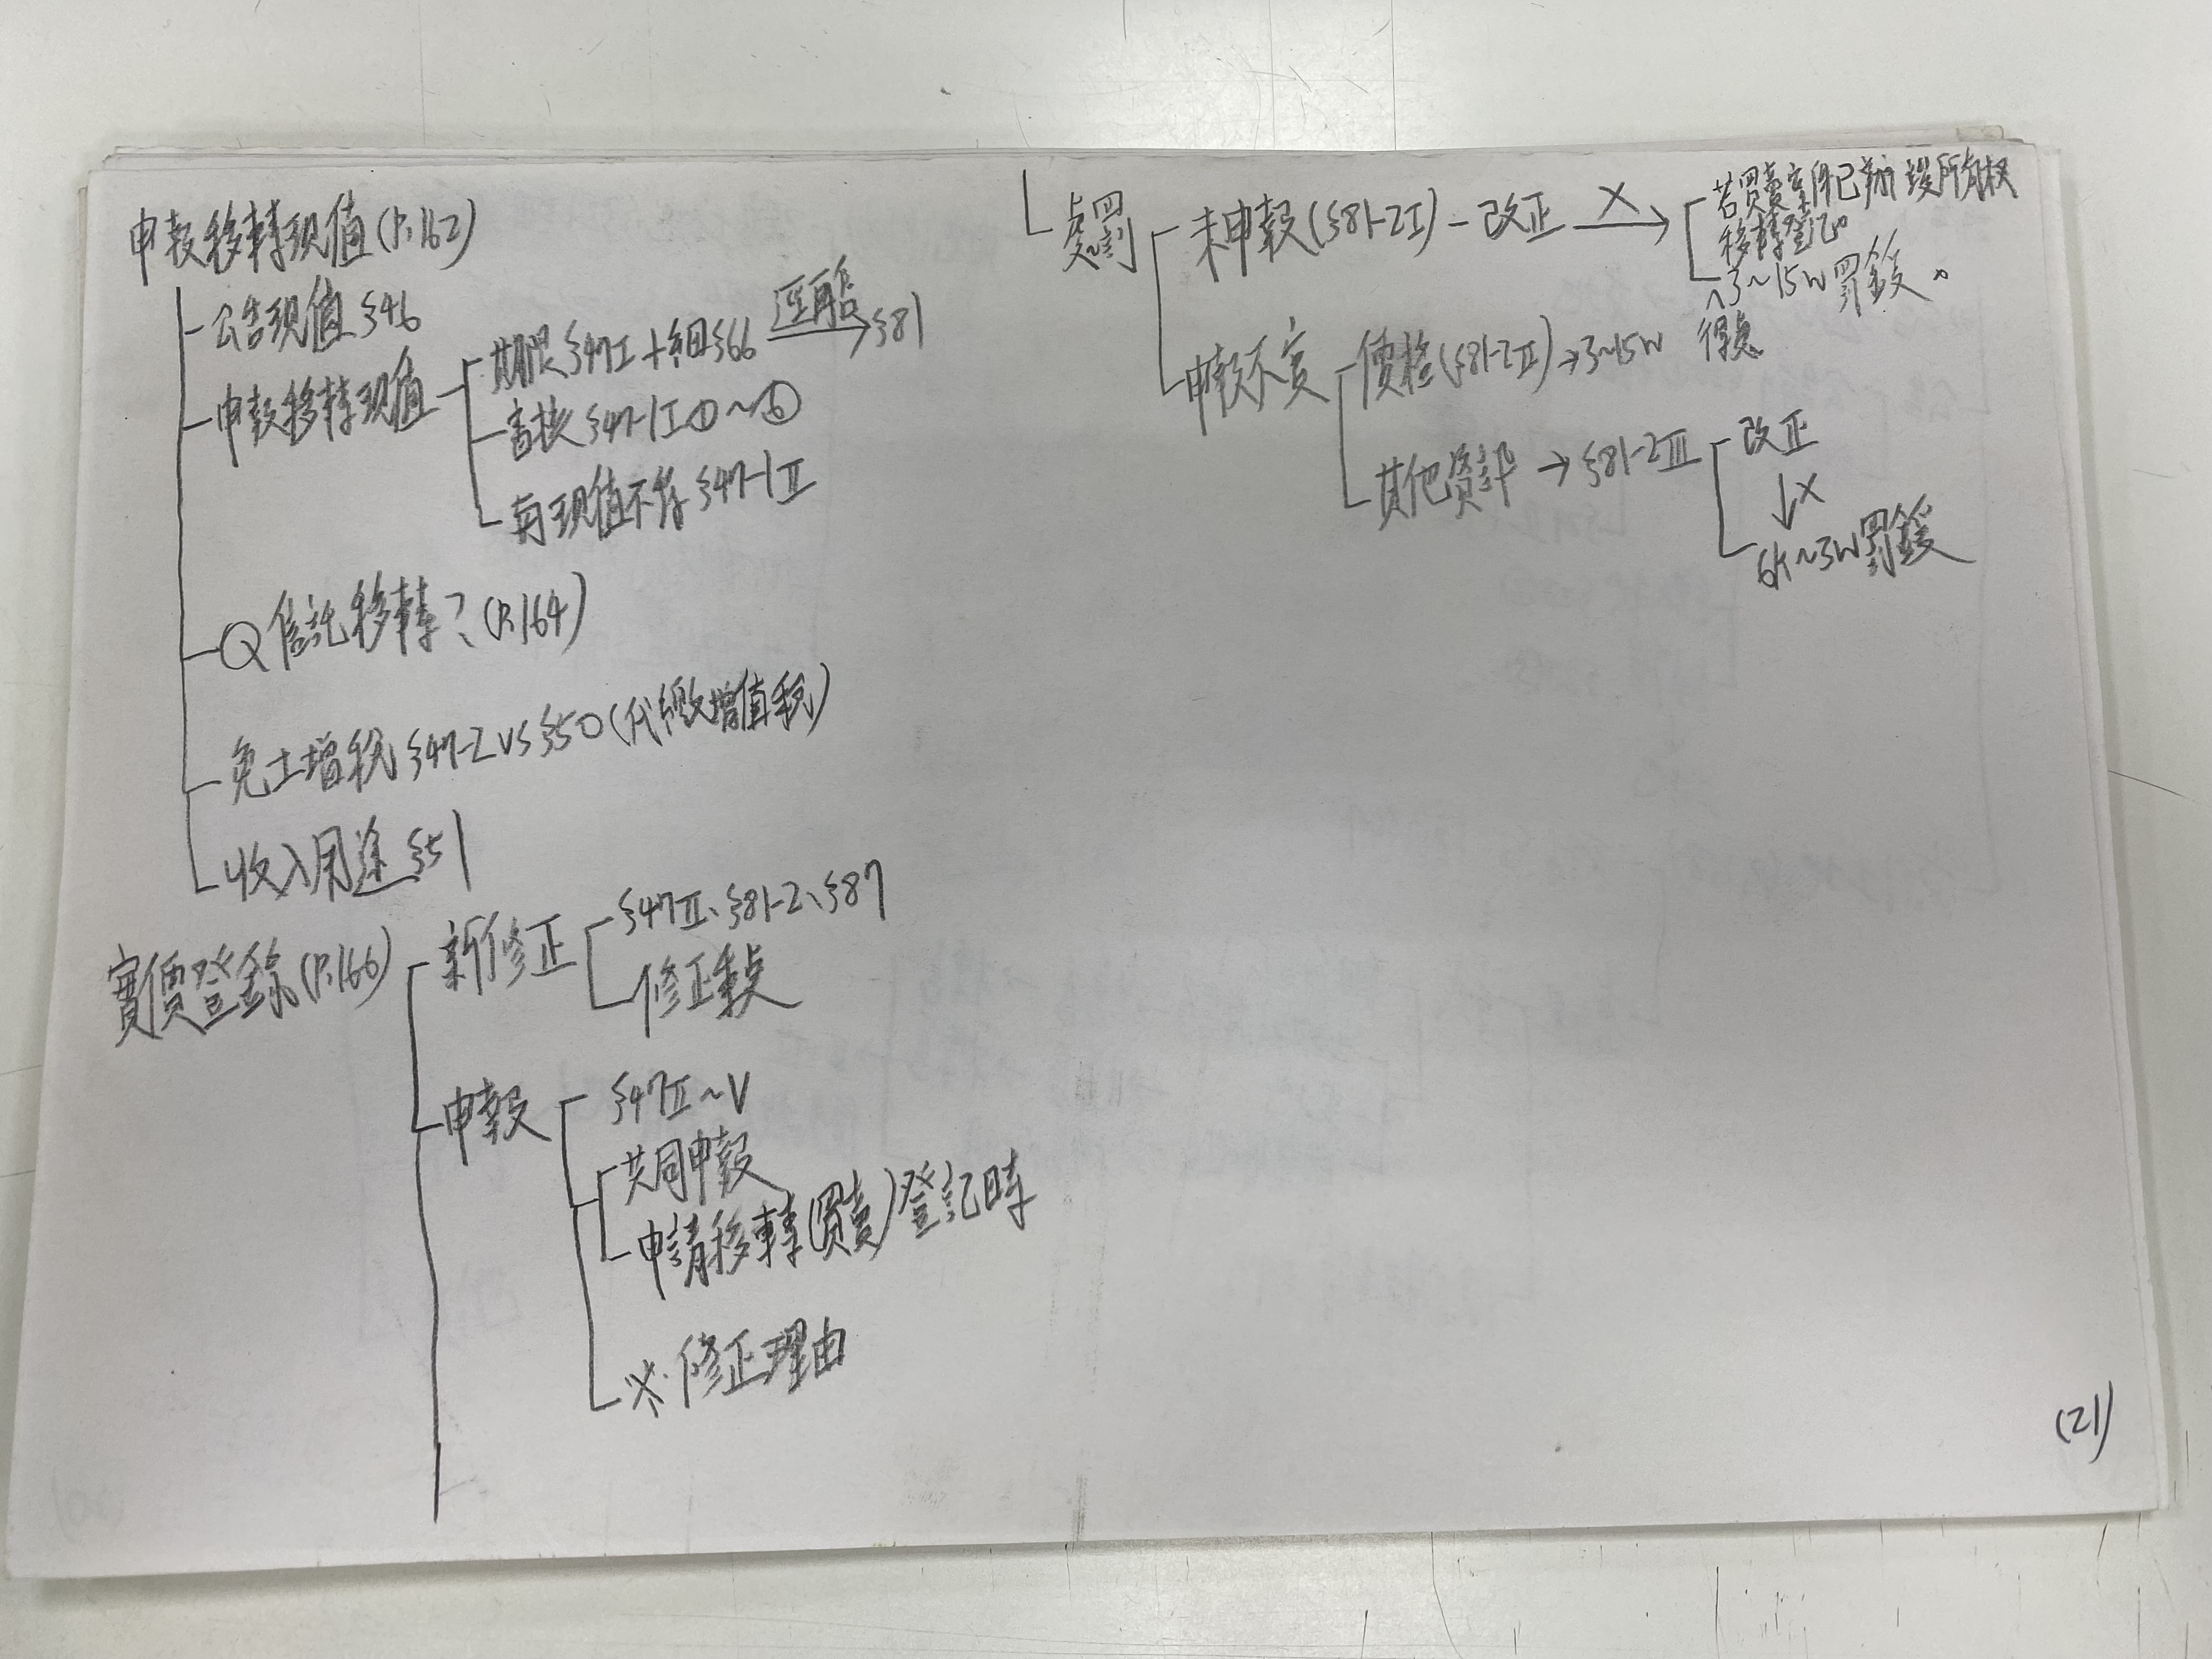 申報移轉現值(P.162)
公告現值 §46
申報移轉現值
期限 §47I+細§66 逕再售 §81
審核 §47-1I①~⑥
與現值不符 §47-1II
Q 信託移轉?(P.164)
免土增稅 §47-2 VS §50(代繳增值稅)
收入用途 §51
實價登錄(P.166)
新修正
§47II、§81-2、§87
修正重點
申報
§47II~V
共同申報
申請移轉(買賣)登記時
※修正理由
處罰
未申報(§81-2I)-改正 X
若買賣案件已辦竣所有权
移轉登記。
3~15W罰鍰。
得處
申報不實
價格(§81-2II)→3~15W
其他資訊→§81-2III
改正
↓X
6K~3W罰鍰
(21)